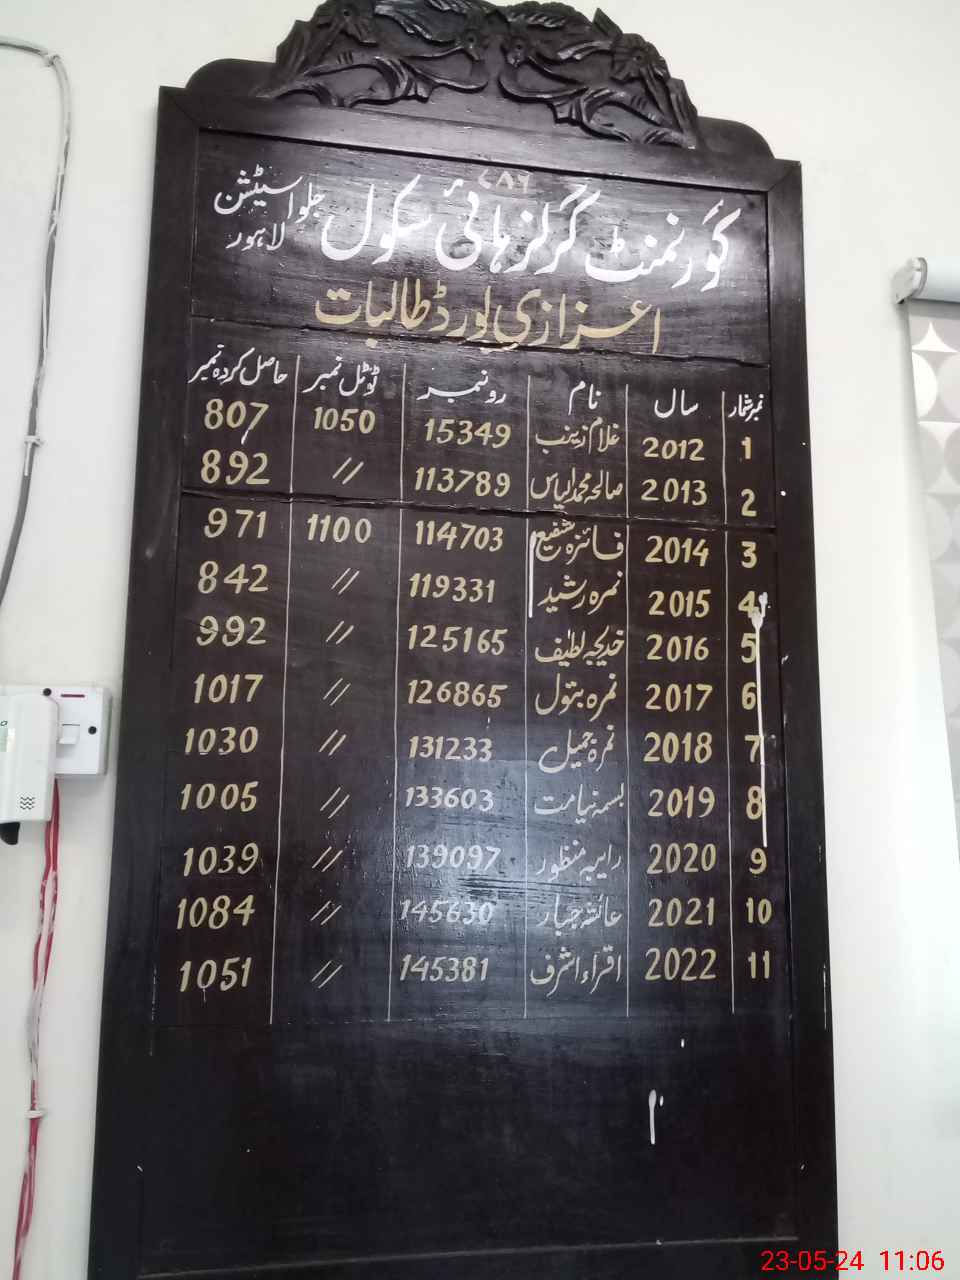 ۷۸۶
گورنمنٹ گرلز ہائی سکول جلو اسٹیشن لاہور
اعزازی بورڈ طالبات
نمبر شمار سال نام رونمبر ٹوٹل نمبر حاصل کردہ نمبر
1 2012 غلام زینب 15349 1050 807
2 2013 صالحہ محمد الیاس 113789 〃 892
3 2014 فائزہ شفیع 114703 1100 971
4 2015 نمرہ رشید 119331 〃 842
5 2016 خدیجہ لطیف 125165 〃 992
6 2017 نمرہ بتول 126865 〃 1017
7 2018 نمرۃ جمیل 131233 〃 1030
8 2019 بسمہ نیامت 133603 〃 1005
9 2020 منظور 139097 〃 1039
10 2021 عائشہ جبار 145630 〃 1084
11 2022 اقراء اشرف 145381 〃 1051
23-05-24 11:06